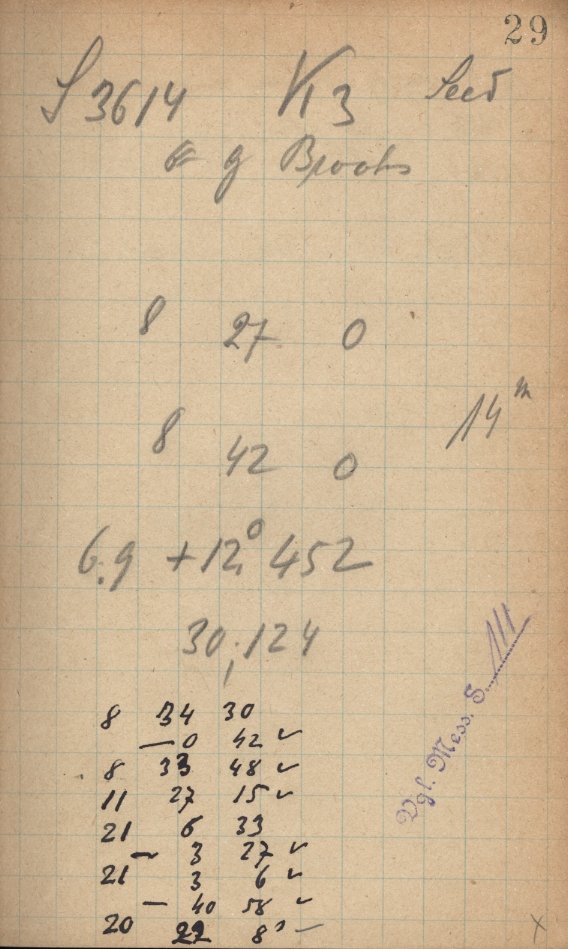 29
S 3614 K 13 Seed
g Brooks
8 27 0
14 m
8 42 0
6.9 +12,° 452
30,124
Vgl. Mess. S. 111
8 34 30
— 0 42 ✓
8 33 48 ✓
11 27 15 ✓
21 6 33
— 3 27 ✓
21 3 6 ✓
— 40 58 ✓
20 22 8 —
x